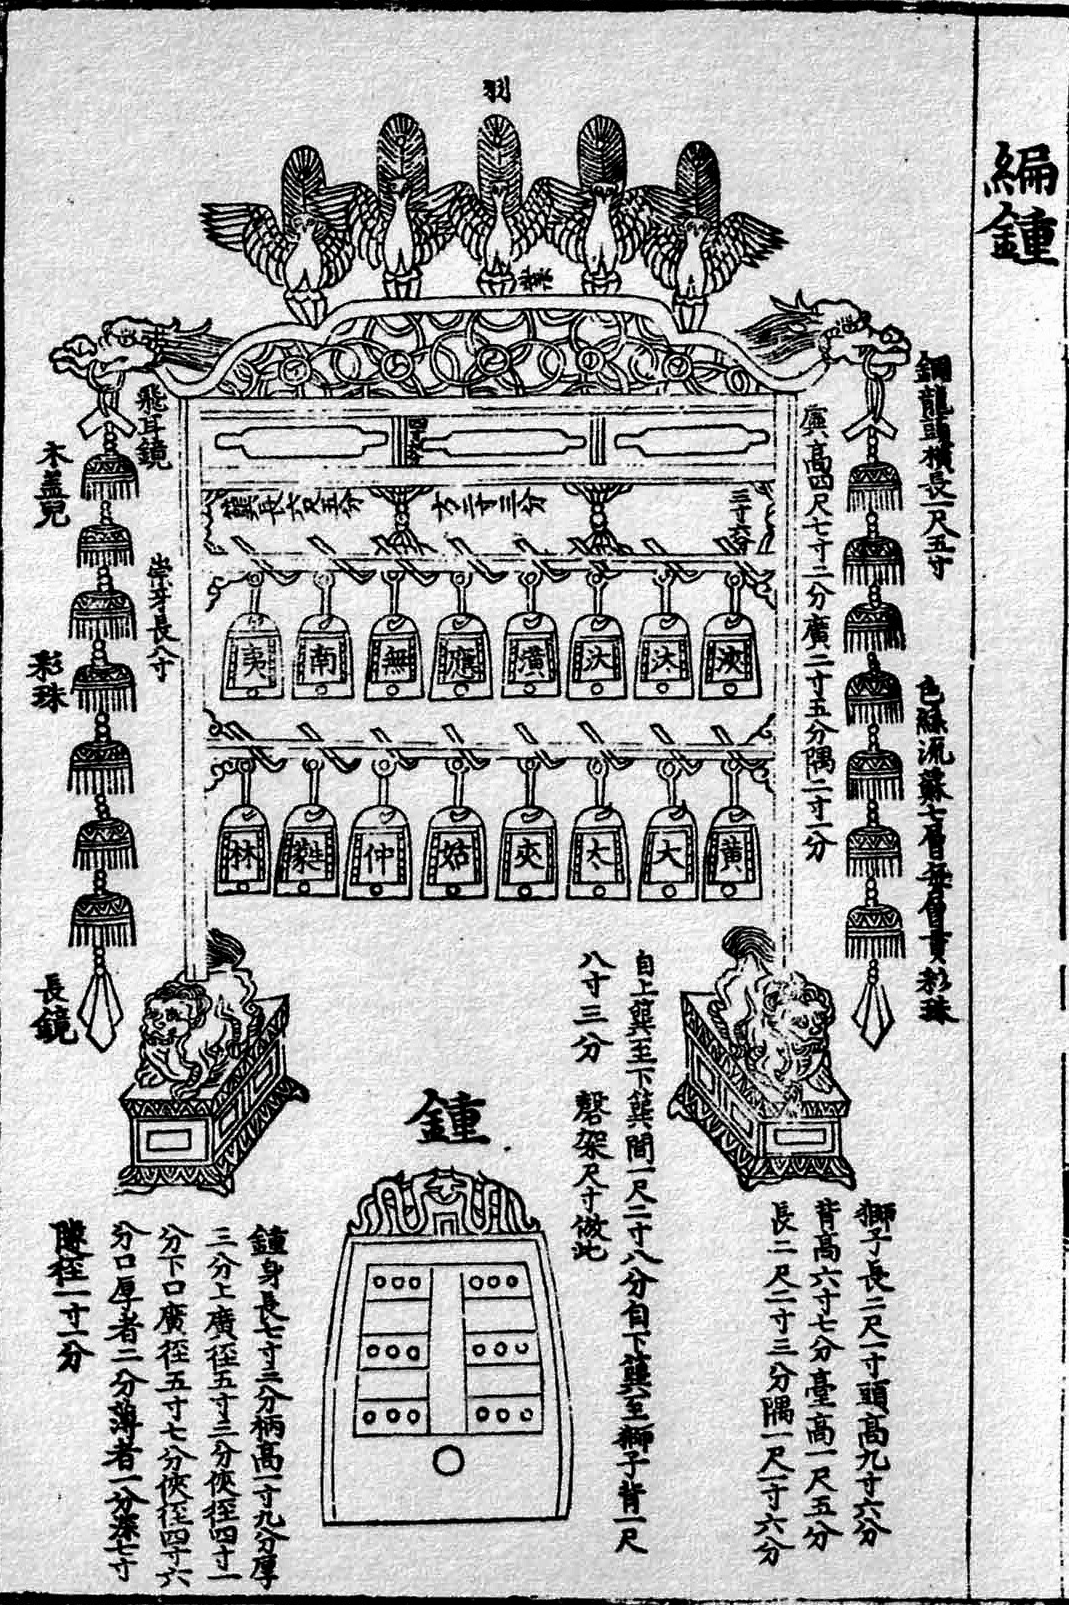 編鍾
羽
業
銅龍頭橫長一尺五寸
色絲流蘇七層每層貫彩珠
飛耳鏡
木盖兒
彩珠
長鏡
崇牙長八寸
高四尺七寸二分廣二寸五分隅二寸一分
長六尺五分
方二寸三分
三寸六分
夷 南 無 應 潢 汏 汰 浹
林 㽔 仲 姑 夾 太 大 黃
獅子長二尺一寸頭高九寸六分
背高六寸七分臺高一尺五分
長二尺二寸三分隅一尺一寸六分
自上簨至下簨間一尺二寸八分自下簨至獅子背一尺
八寸三分 磬架尺寸倣此
鍾
鍾身長七寸三分柄高一寸九分厚
三分上廣徑五寸三分俠徑四寸一
分下口廣徑五寸七分俠徑四寸六
分口厚者二分薄者一分深七寸
隧徑一寸一分